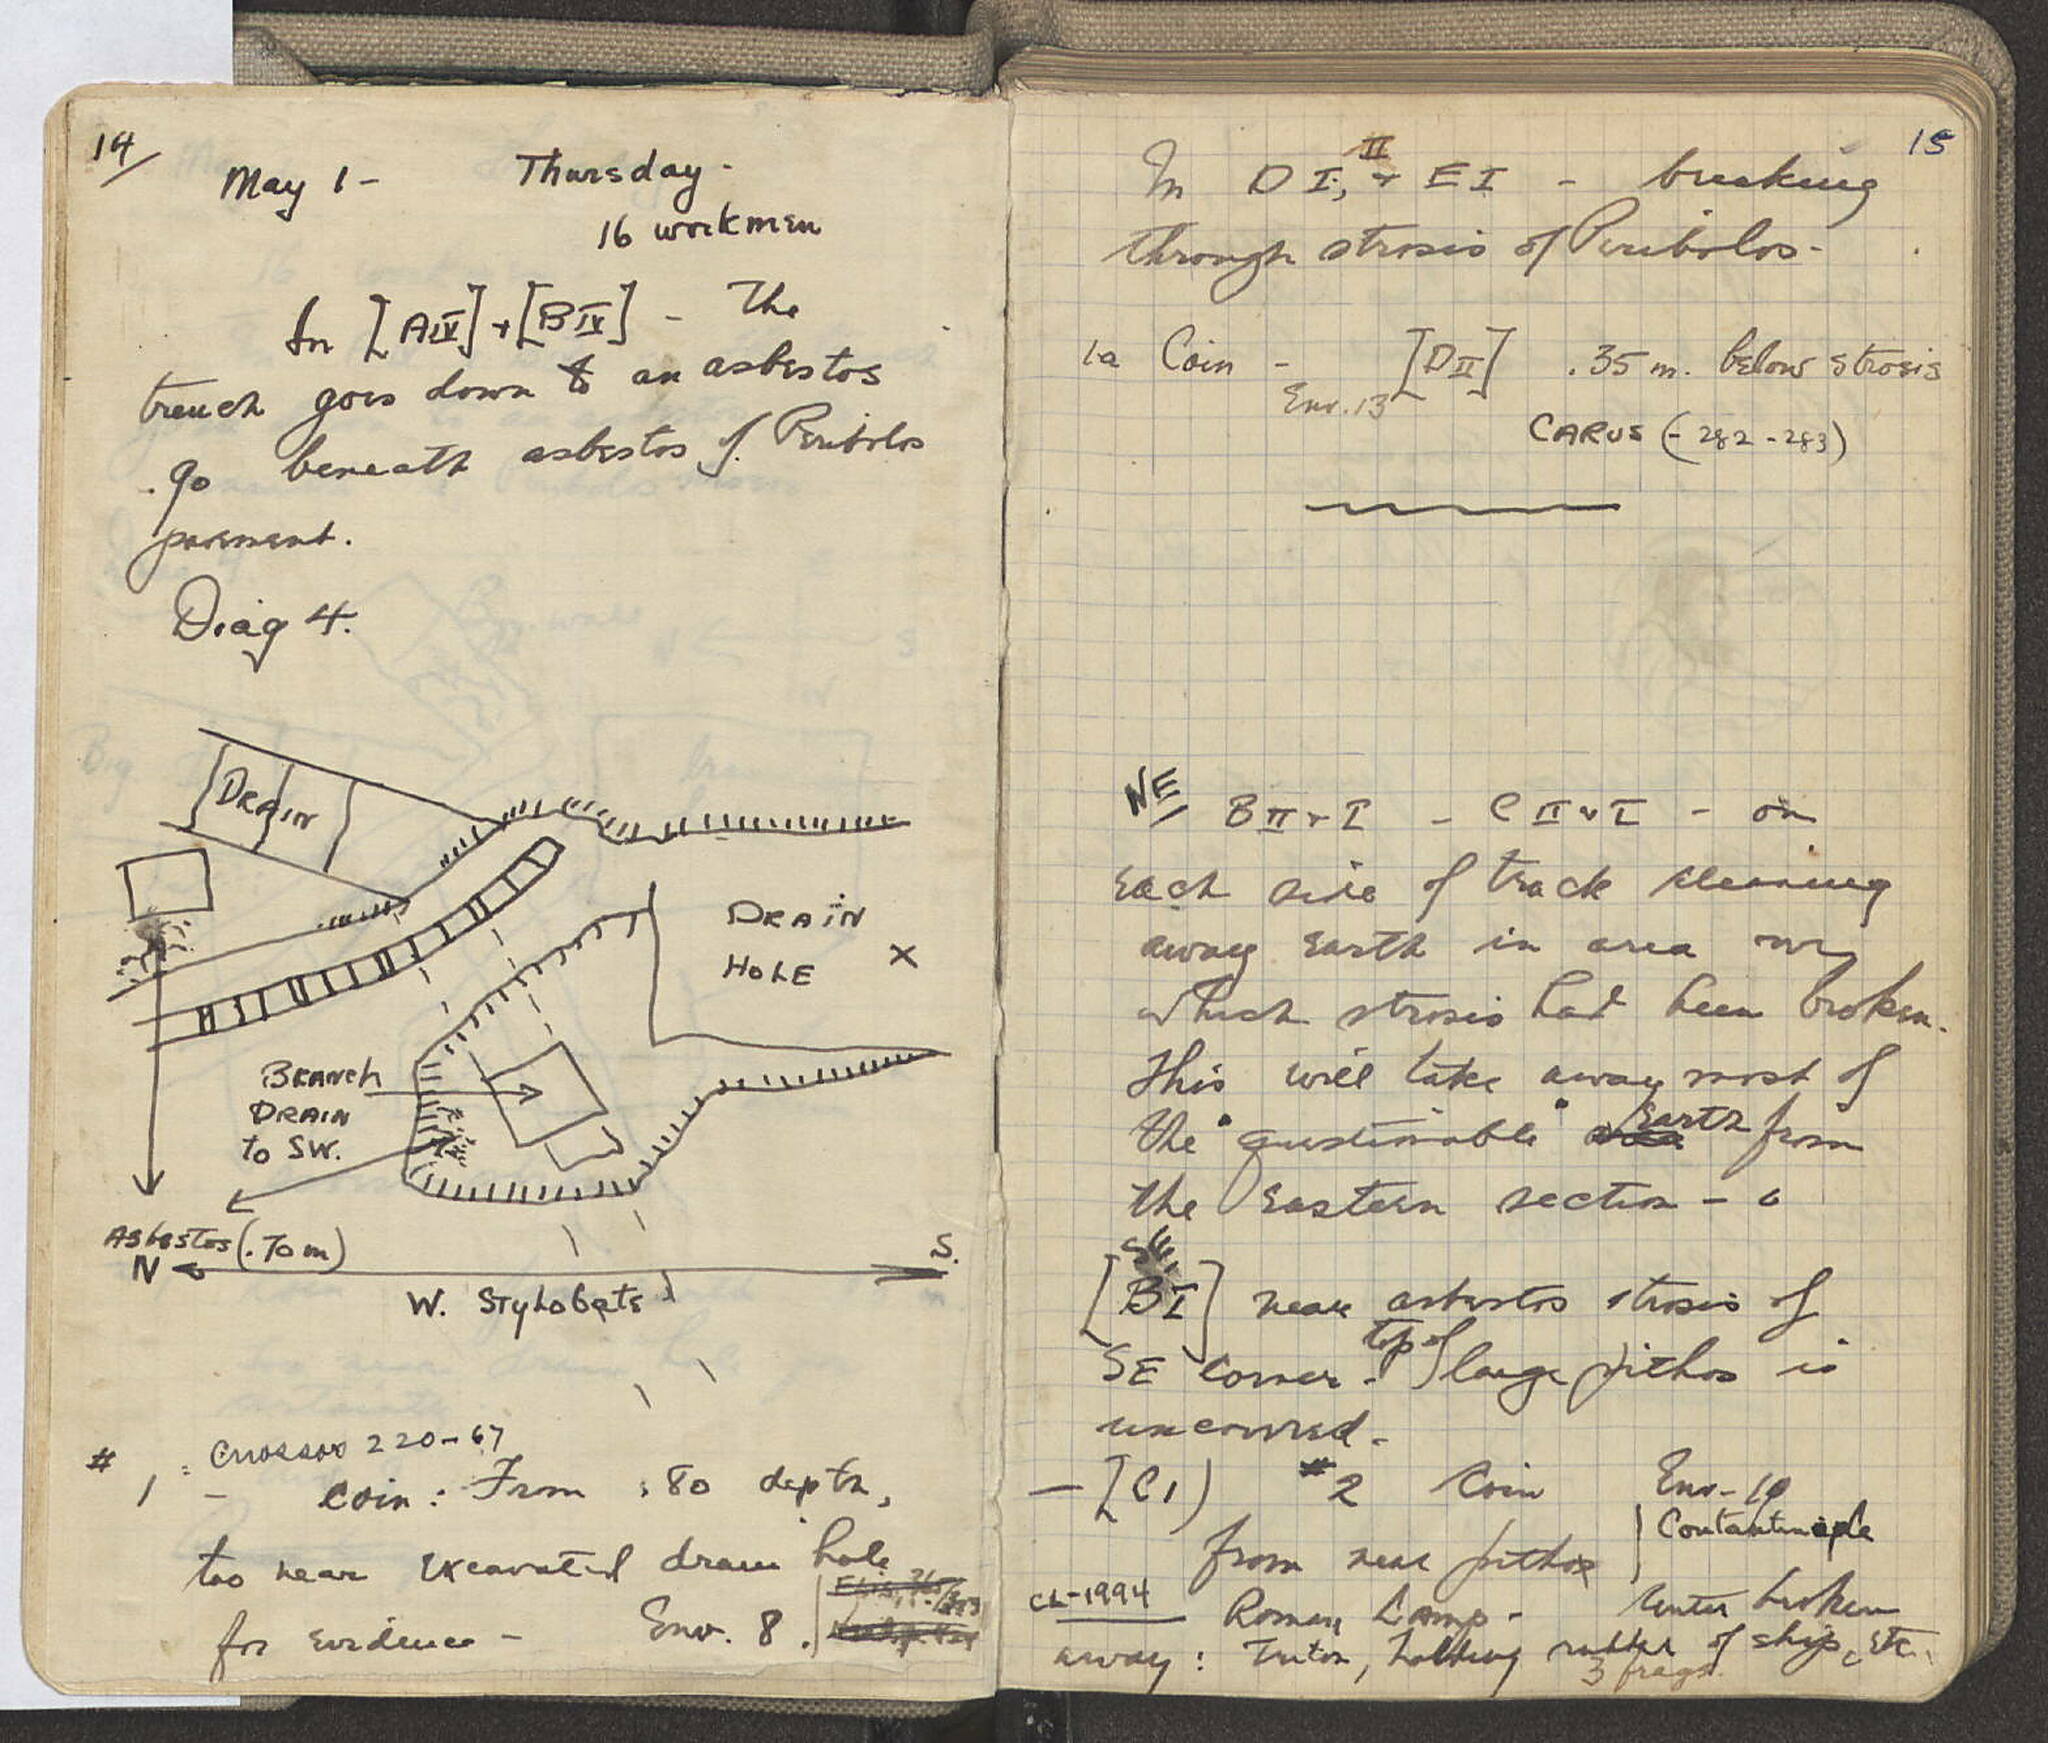 14
May 1 - Thursday -
16 workmen
In [A IV] + [B IV] - The
trench goes down to an asbestos
go beneath asbestos of Peribolos
pavement.
Diag 4.
DRAIN
DRAIN
HOLE X
BRANch
DRAIN
to SW.
Asbestos (.70 m)
N S.
W. Stylobate
# 1 : Cnossos 220-67
- Coin : From .80 depth,
too near excavated drain hole
for evidence - Env. 8.
15
In D I, II + E I - breaking
through strosis of Peribolos -
1a Coin - [D II] .35 m. below strosis
Env. 13
CARUS (- 282 - 283)
NE B II + I - C II + I - on
each side of track cleaning
away earth in area
which strosis had been broken.
This will take away most of
the "questionable" earth from
the Eastern section -
SE
[B I] near asbestos strosis of
SE corner - top of large pithos is
uncovered -
- [C I] #2 Coin Env - 10
from near pithos
CL-1994 Roman Lamp - Center broken
away : Triton, holding rudder of ship, etc.
3 frags.